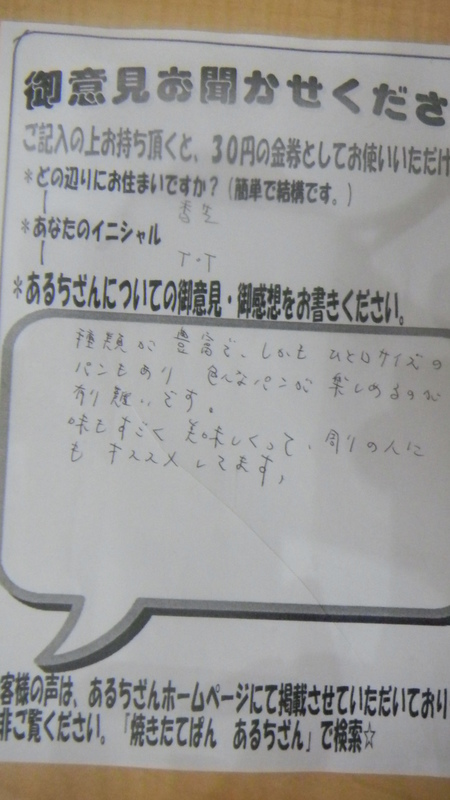 御意見お聞かせくださ
ご記入の上お持ち頂くと、30円の金券としてお使いいただけ
*どの辺りにお住まいですか?(簡単で結構です。)
香芝
*あなたのイニシャル
T・T
*あるちざんについての御意見・御感想をお書きください。
種類が豊富で、しかもひと口サイズの
パンもあり色んなパンが楽しめるのが
有り難いです。
味もすごく美味しくって、周りの人に
もオススメしてます。
客様の声は、あるちざんホームページにて掲載させていただいており
非ご覧ください。「焼きたてぱん あるちざん」で検索☆